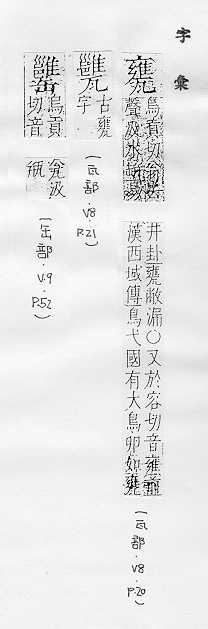 字彙
甕
烏貢切翁去
聲汲水
井卦甕敝漏○又於容切音雍
漢西域傳烏弋國有大鳥卵如甕
(瓦部.V8.P.20)
古甕
字
(瓦部.V8.P.21)
烏貢
切音
瓮汲
瓶
(缶部.V.9.P.52)